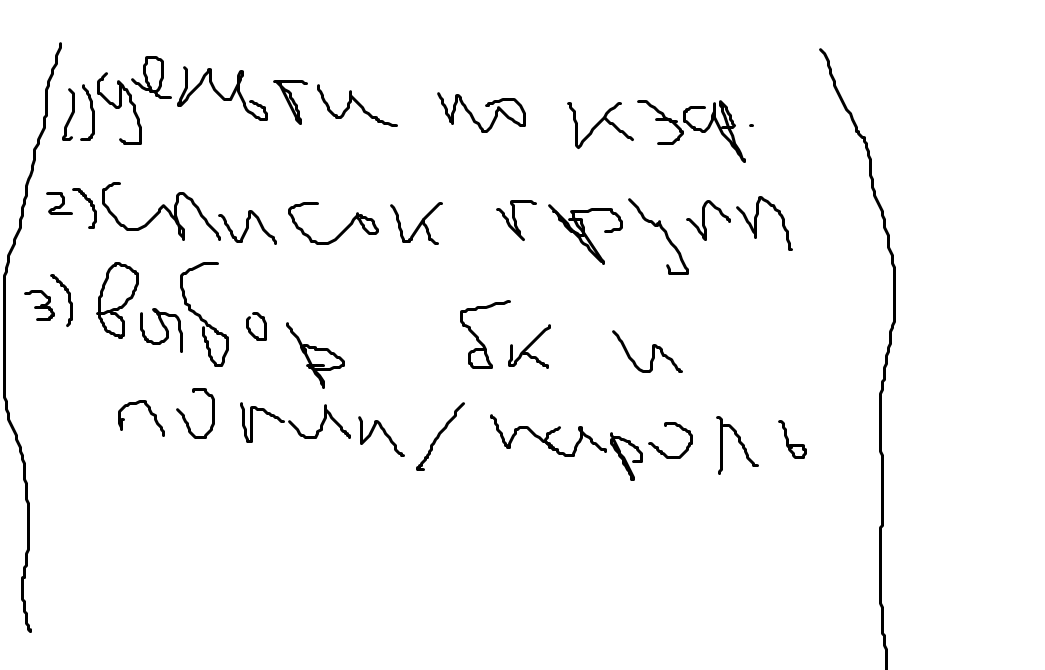 1) по кэф.
2) список групп
3) выбор бк и
логин/пароль